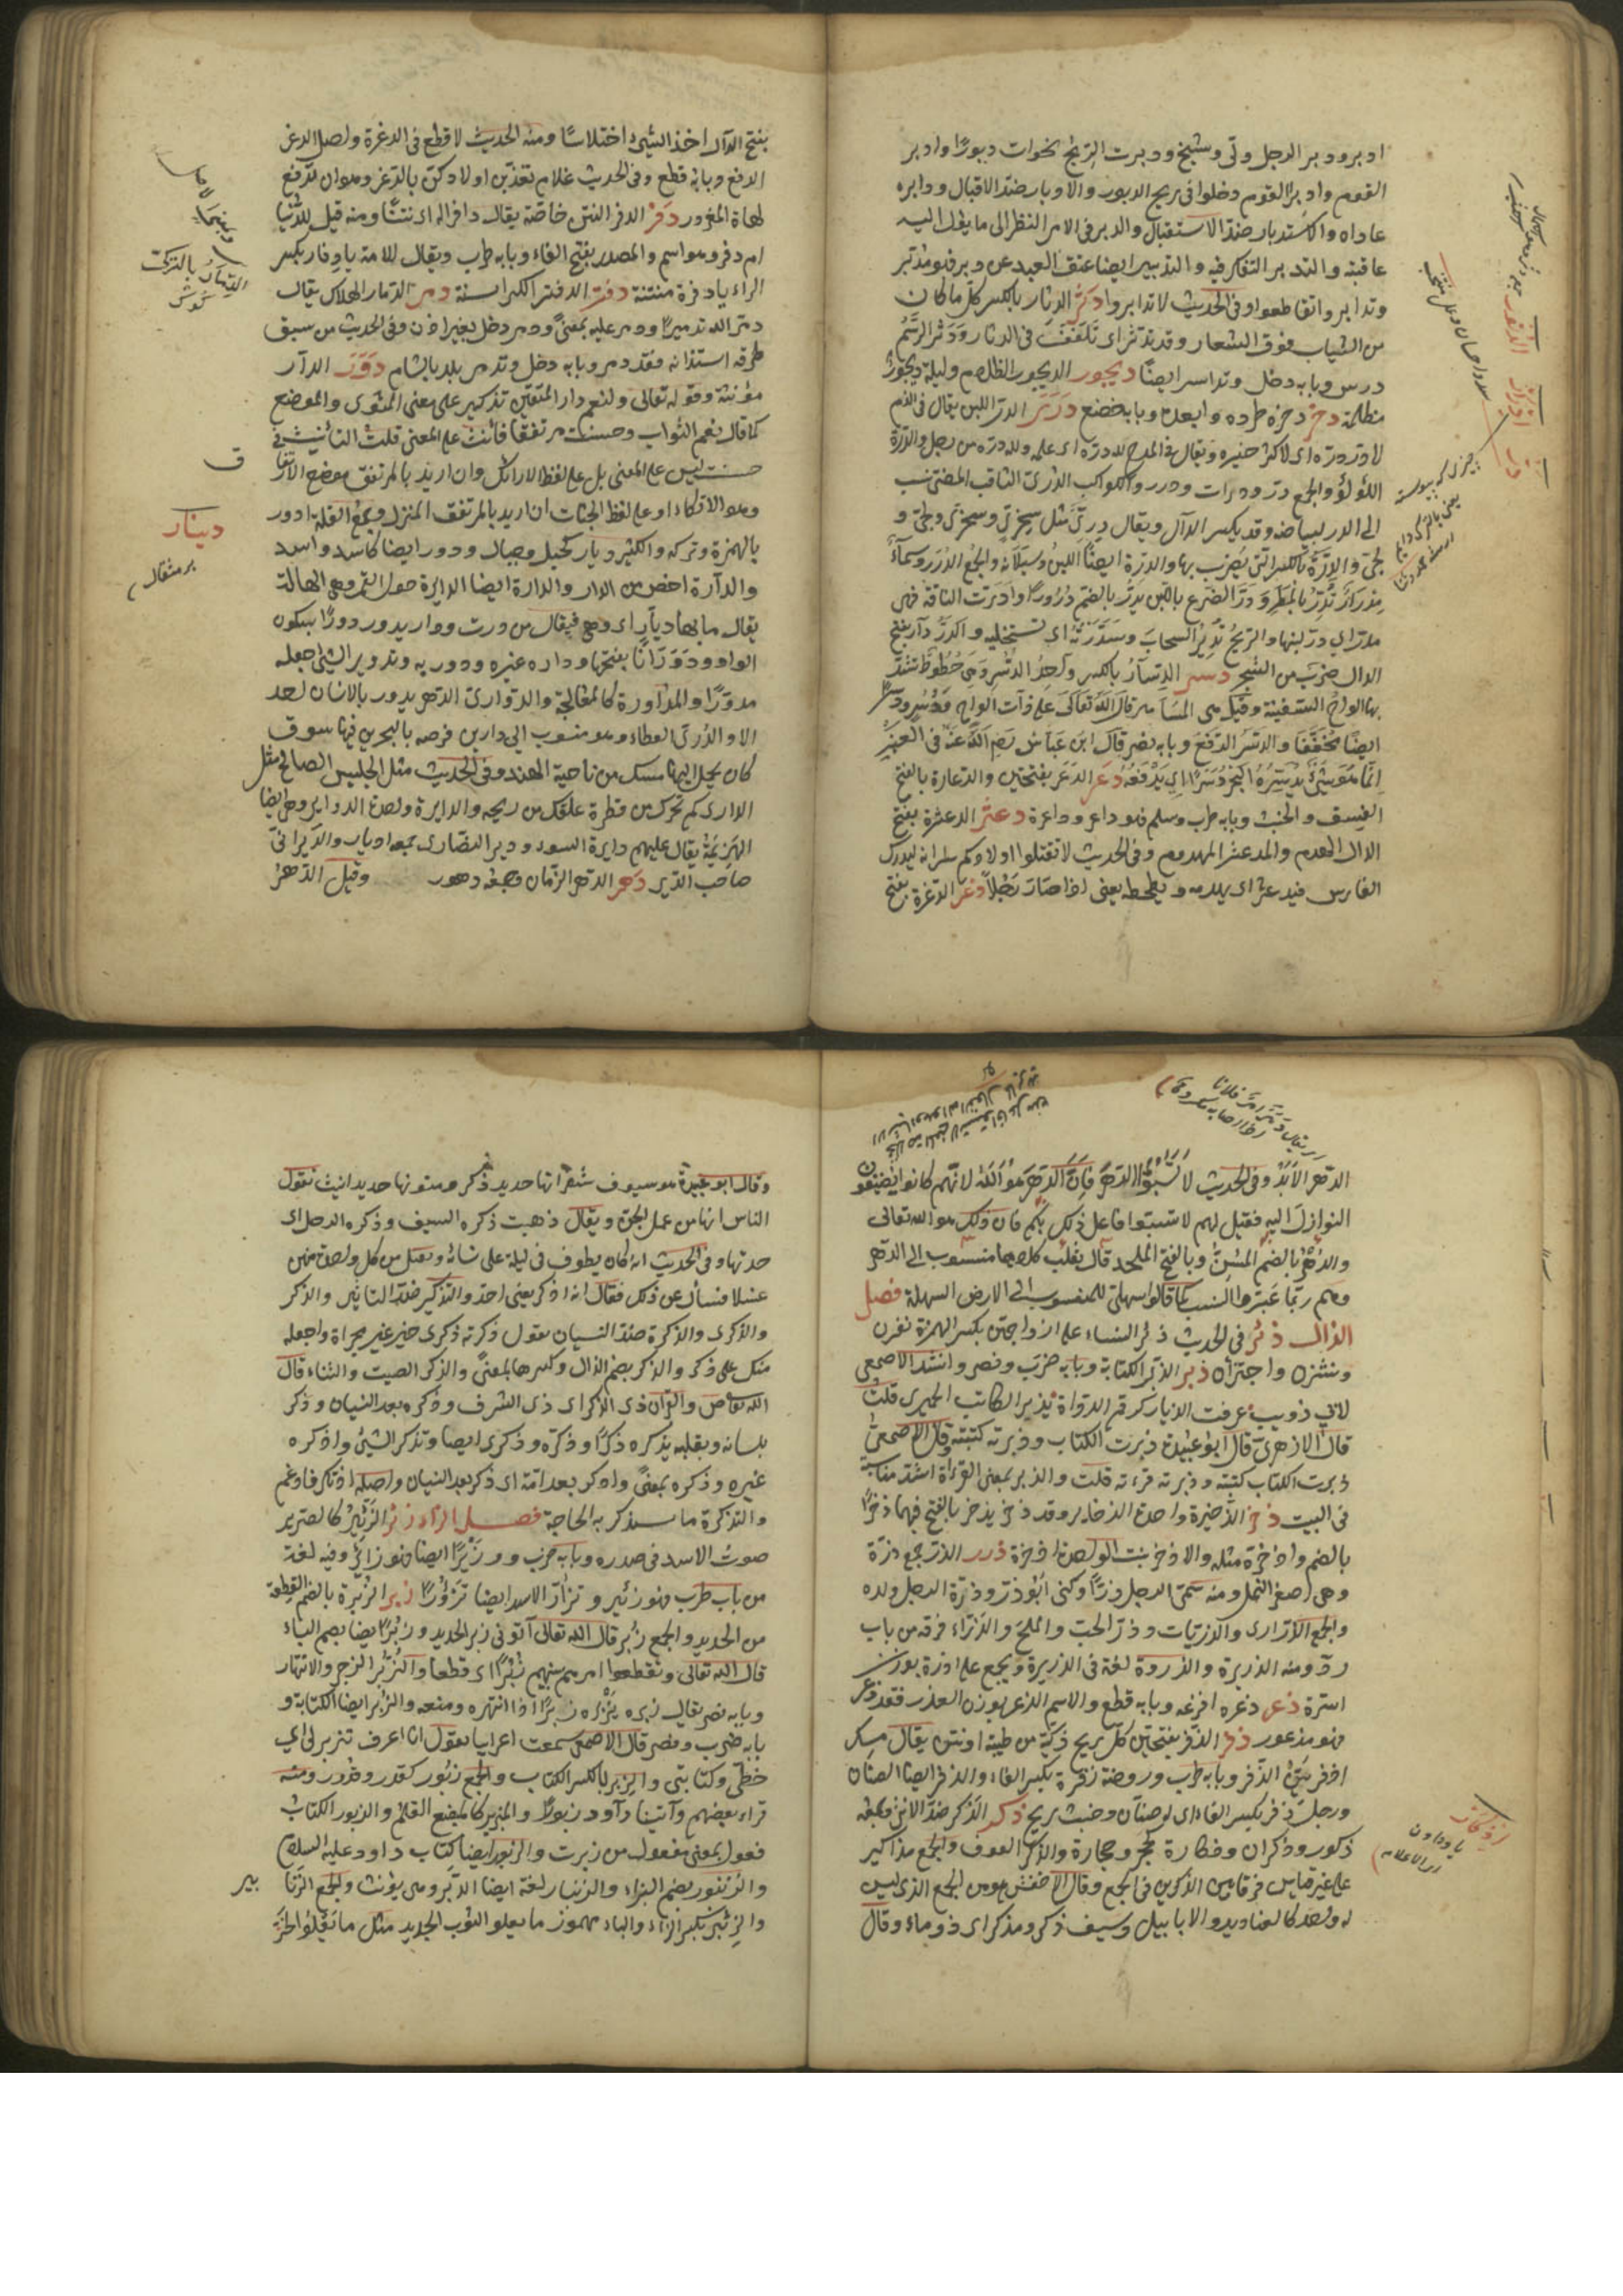 ادبر ودبر الرجل ولّى وشيخ ودبرت الريح تحولت دبورًا وادبر
القوم وادبر القوم دخلوا فى ريح الدبور والادبار ضدّ الاقبال ودابره
عاداه والاستدبار ضدّ الاستقبال والدبر فى الامر النظر الى ما يؤل اليه
عاقبته والتدبر التفكر فيه والتدبير ايضا عتق العبد عن دبر فهو مدبّر
وتدابروا تقاطعوا وفى الحديث لا تدابروا دثر الدثار بالكسر كل ما كان
من الثياب فوق الشعار وقد تدثر اى تلفّف فى الدثار ودثر الرسم
درس وبابه دخل وتداثر ايضًا ديجور الديجور الظلام وليلة ديجور
مظلمة دحر دحره طرده وابعده وبابه خضع درر الدرّ اللبن يقال فى الذم
لا درّ درّه اى لا كثر خيره ويقال فى المدح لله درّه اى عمله ولله درّه من رجل والدرّة
اللؤلؤ والجمع درّ ودرات ودرر والكواكب الدرّى الثاقب المضئ نسب
الى الدر لبياضه وقد يكسر الدال ويقال درّىّ مثل سخرىّ وسخرىّ ولجّى و
لجّى والدرّة بالكسر التى يضرب بها والدرة ايضًا اللبن وسيلانه والجمع الدرر وسماءٌ
مدرار تدرّ بالمطر ودرّ الضرع باللبن يدرّ بالضم درورًا وادرّت الناقة فهى
مدرّ اى درّ لبنها والريح تدرّ السحاب وتستدرّه اى تستحلبه والدردار بفتح
الدال ضرب من الشجر دسر الدسار بالكسر واحد الدسر وهى خطوط تشدّ
بها الواح السفينة وقيل هى المسامير قال الله تعالى على ذات الواح ودسر ودسر
ايضًا مخففا والدسر الدفع وبابه نصر قال ابن عباس رضى الله عنه فى العنبر
انما هو شئ يدسره البحر دسرًا اى يدفعه دعر الدعر بفتحتين والدعارة بالفتح
الفسق والخبث وبابه طرب وسلم فهو داعر وداعرة دعثر الدعثرة بفتح
الدال الهدم والمدعثر المهدوم وفى الحديث لا تقتلوا اولادكم سرا انه ليدرك
الفارس فيدعثره اى يهدمه ويطحطحه يعنى اذا صار رجلاً دغر الدغرة بفتح
بفتح الدال اخذ الشئ اختلاسًا ومنه الحديث لا قطع فى الدغرة واصل الدغر
الدفع وبابه قطع وفى الحديث علام تعذبن اولادكن بالدغر وهو ان ترفع
لهاة المعذور دفر الدفر النتن خاصّة يقال دافرا له اى نتنًا ومنه قيل للدنيا
ام دفر وهو اسم والمصدر بفتح الفاء وبابه طرب ويقال للامة يا دفار بكسر
الراء يا دفرة منتنة دفتر الدفتر الكراسة دمر الدمار الهلاك يقال
دمّره الله تدميرًا ودمر عليه بمعنى ودمر دخل بغير اذن وفى الحديث من سبق
طرفه استئذانه فقد دمر وبابه دخل وتدمر بلد بالشام دور الدار
مؤنثة وقوله تعالى ولنعم دار المتقين تذكير على معنى المثوى والموضع
كما قال نعم الثواب وحسنت مرتفقًا فانث على المعنى قلت التانيث فى
حسنت ليس على المعنى بل على لفظ الارائك وان اريد بالمرتفق موضع الارتفاق
وهو الاتكاء او على لفظ الجنات ان اريد بالمرتفق المنزل وجمع القلة ادور
بالهمزة وتركه والكثير ديار كجبل وجبال ودور ايضا كاسد واسد
والدارة اخص من الدار والدارة ايضا الدايرة حول القمر وهى الهالة
يقال ما بها ديّار اى احد وهو فيعال من درت ودار يدور دورًا بسكون
الواو ودورانًا بفتحها واداره غيره ودور به وتدوير الشئ جعله
مدوّرًا والمداورة كالمعالجة والدوّارى الدهر يدور بالانسان احوالا
والدارى العطار وهو منسوب الى دارين فرضة بالبحرين فيها سوق
كان يحمل اليها مسك من ناحية الهند وفى الحديث مثل الجليس الصالح مثل
الدارى ان لم يحذك من عطره علقك من ريحه والدايرة واحدة الدواير وهى ايضا
الهزيمة يقال عليهم دايرة السوء ودير النصارى جمعه اديار والديرانىّ
صاحب الدير دهر الدهر الزمان وجمعه دهور وقيل الدهر
دينار
الدهر الابد وفى الحديث لا تسبّوا الدهر فان الدهر هو الله لانهم كانوا يضيفون
النوازل اليه فقيل لهم لا تسبّوا فاعل ذلك بكم فان ذلك هو الله تعالى
والدهرى بالضم المسنّ وبالفتح الملحد قال ثعلب كلاهما منسوب الى الدهر
وهم ربما غيّروا النسب كما قالوا سهلىّ للمنسوب الى الارض السهلة فصل
الذال ذئر فى الحديث ذئر النساء على ازواجهن بكسر الهمزة نفرن
ونشزن واجترأن ذبر الذبر الكتابة وبابه ضرب ونصر وانشد الاصمعى
لابى ذويب عرفت الديار كرقم الدواة يذبر الكاتب الحميرى قلت
قال الازهرى قال ابو عبيدة ذبرت الكتاب وذبرته كتبته وقال الاصمعى
زبرت الكتاب كتبته وذبرته قرءته قلت والذبر بمعنى القراءة اشد مناسبة
فى البيت ذخر الذخيرة واحدة الذخاير وقد ذخر يذخر بالفتح فيهما ذخرًا
بالضم واذخره مثله والاذخر نبت الواحدة اذخرة ذرر الذر جمع ذرّة
وهى اصغر النمل ومنه سمّى الرجل ذرًّا وكنى ابو ذرّ وذرّيّة الرجل ولده
والجمع الذرارى والذريات وذرّ الحبّ والملح والدواء فرقه من باب
ردّ ومنه الذريرة والذرورة لغة فى الذريرة ويجمع على اذرة بوزن
اسرة ذعر ذعره افزعه وبابه قطع والاسم الذعر بوزن العذر فقد ذعر
فهو مذعور ذفر الذفر بفتحتين كلّ ريح ذكيّة من طيبة او نتن يقال مسك
اذفر بيّن الذفر وبابه طرب وروضة ذفرة بكسر الفاء والذفر ايضا الصنان
ورجل ذفر بكسر الفاء اى له صنان وخبث ريح ذكر الذكر ضدّ الانثى وجمعه
ذكور وذكران وذكارة كحجر وحجارة والذكر العوف والجمع مذاكير
على غير قياس فرقا بين الذكرين فى الجمع وقال الاخفش هو من الجمع الذى ليس
له واحد كالعباديد والابابيل وسيف ذكر ومذكر اى ذو ماء وقال
وقال ابو عبيدة هو سيوف شفراتها حديد ذكر ومتونها حديد انيث يقول
الناس انها من عمل الجن ويقال ذهبت ذكره السيف وذكره الرجل اى
حدتها وفى الحديث انه كان يطوف فى ليلة على نسائه ويغتسل من كل واحدة منهن
غسلا فسئل عن ذلك فقال انه اذكر يعنى احدّ والتذكير ضدّ التانيث والذكر
والذكرى والذكرة ضدّ النسيان تقول ذكرته ذكرى خير غير مجراة واجعله
منك على ذكر والذكر بضم الذال وكسرها بمعنى والذكر الصيت والثناء قال
الله تعالى ص والقرآن ذى الذكر اى ذى الشرف وذكره بعد النسيان وذكر
بلسانه وبقلبه يذكره ذكرًا وذكره وذكرى ايضا وتذكر الشئ واذكره
غيره وذكره بمعنى وادكر بعد امّة اى ذكر بعد النسيان واصله اذتكر فادغم
والتذكرة ما يستذكر به الحاجة فصل الراء زئر الزئير كالصرير
صوت الاسد فى صدره وبابه ضرب وزئيرًا ايضا فهو زائر وفيه لغة
من باب طرب فهو زئير وتزأر الاسد ايضا تزؤرًا زبر الزبرة بالضم القطعة
من الحديد والجمع زبر قال الله تعالى آتونى زبر الحديد وزبرًا ايضا بضم الباء
قال الله تعالى وتقطعوا امرهم بينهم زبرًا اى قطعا والزبر الزجر والانتهار
وبابه نصر يقال زبره يزبره زبرًا اذا انتهره ومنعه والزبر ايضا الكتابة و
بابه ضرب ونصر قال الاصمعى سمعت اعرابيا يقول انا اعرف تزبرتى اى
خطى وكتابتى والزبر بالكسر الكتاب والجمع زبور كقدر وقدور ومنه
قراء بعضهم وآتينا داود زبورًا والمزبر كالمبضع القلم والزبور الكتاب
فعول بمعنى مفعول من زبرت والزبور ايضا كتاب داود عليه السلام
والزنبور بضم الزاء والزنبار لغة ايضا الدبر وهى يؤنث والجمع الزنا
بير
والزئبر بكسر الزاء والباء مهموز ما يعلو الثوب الجديد مثل ما يعلو الخز